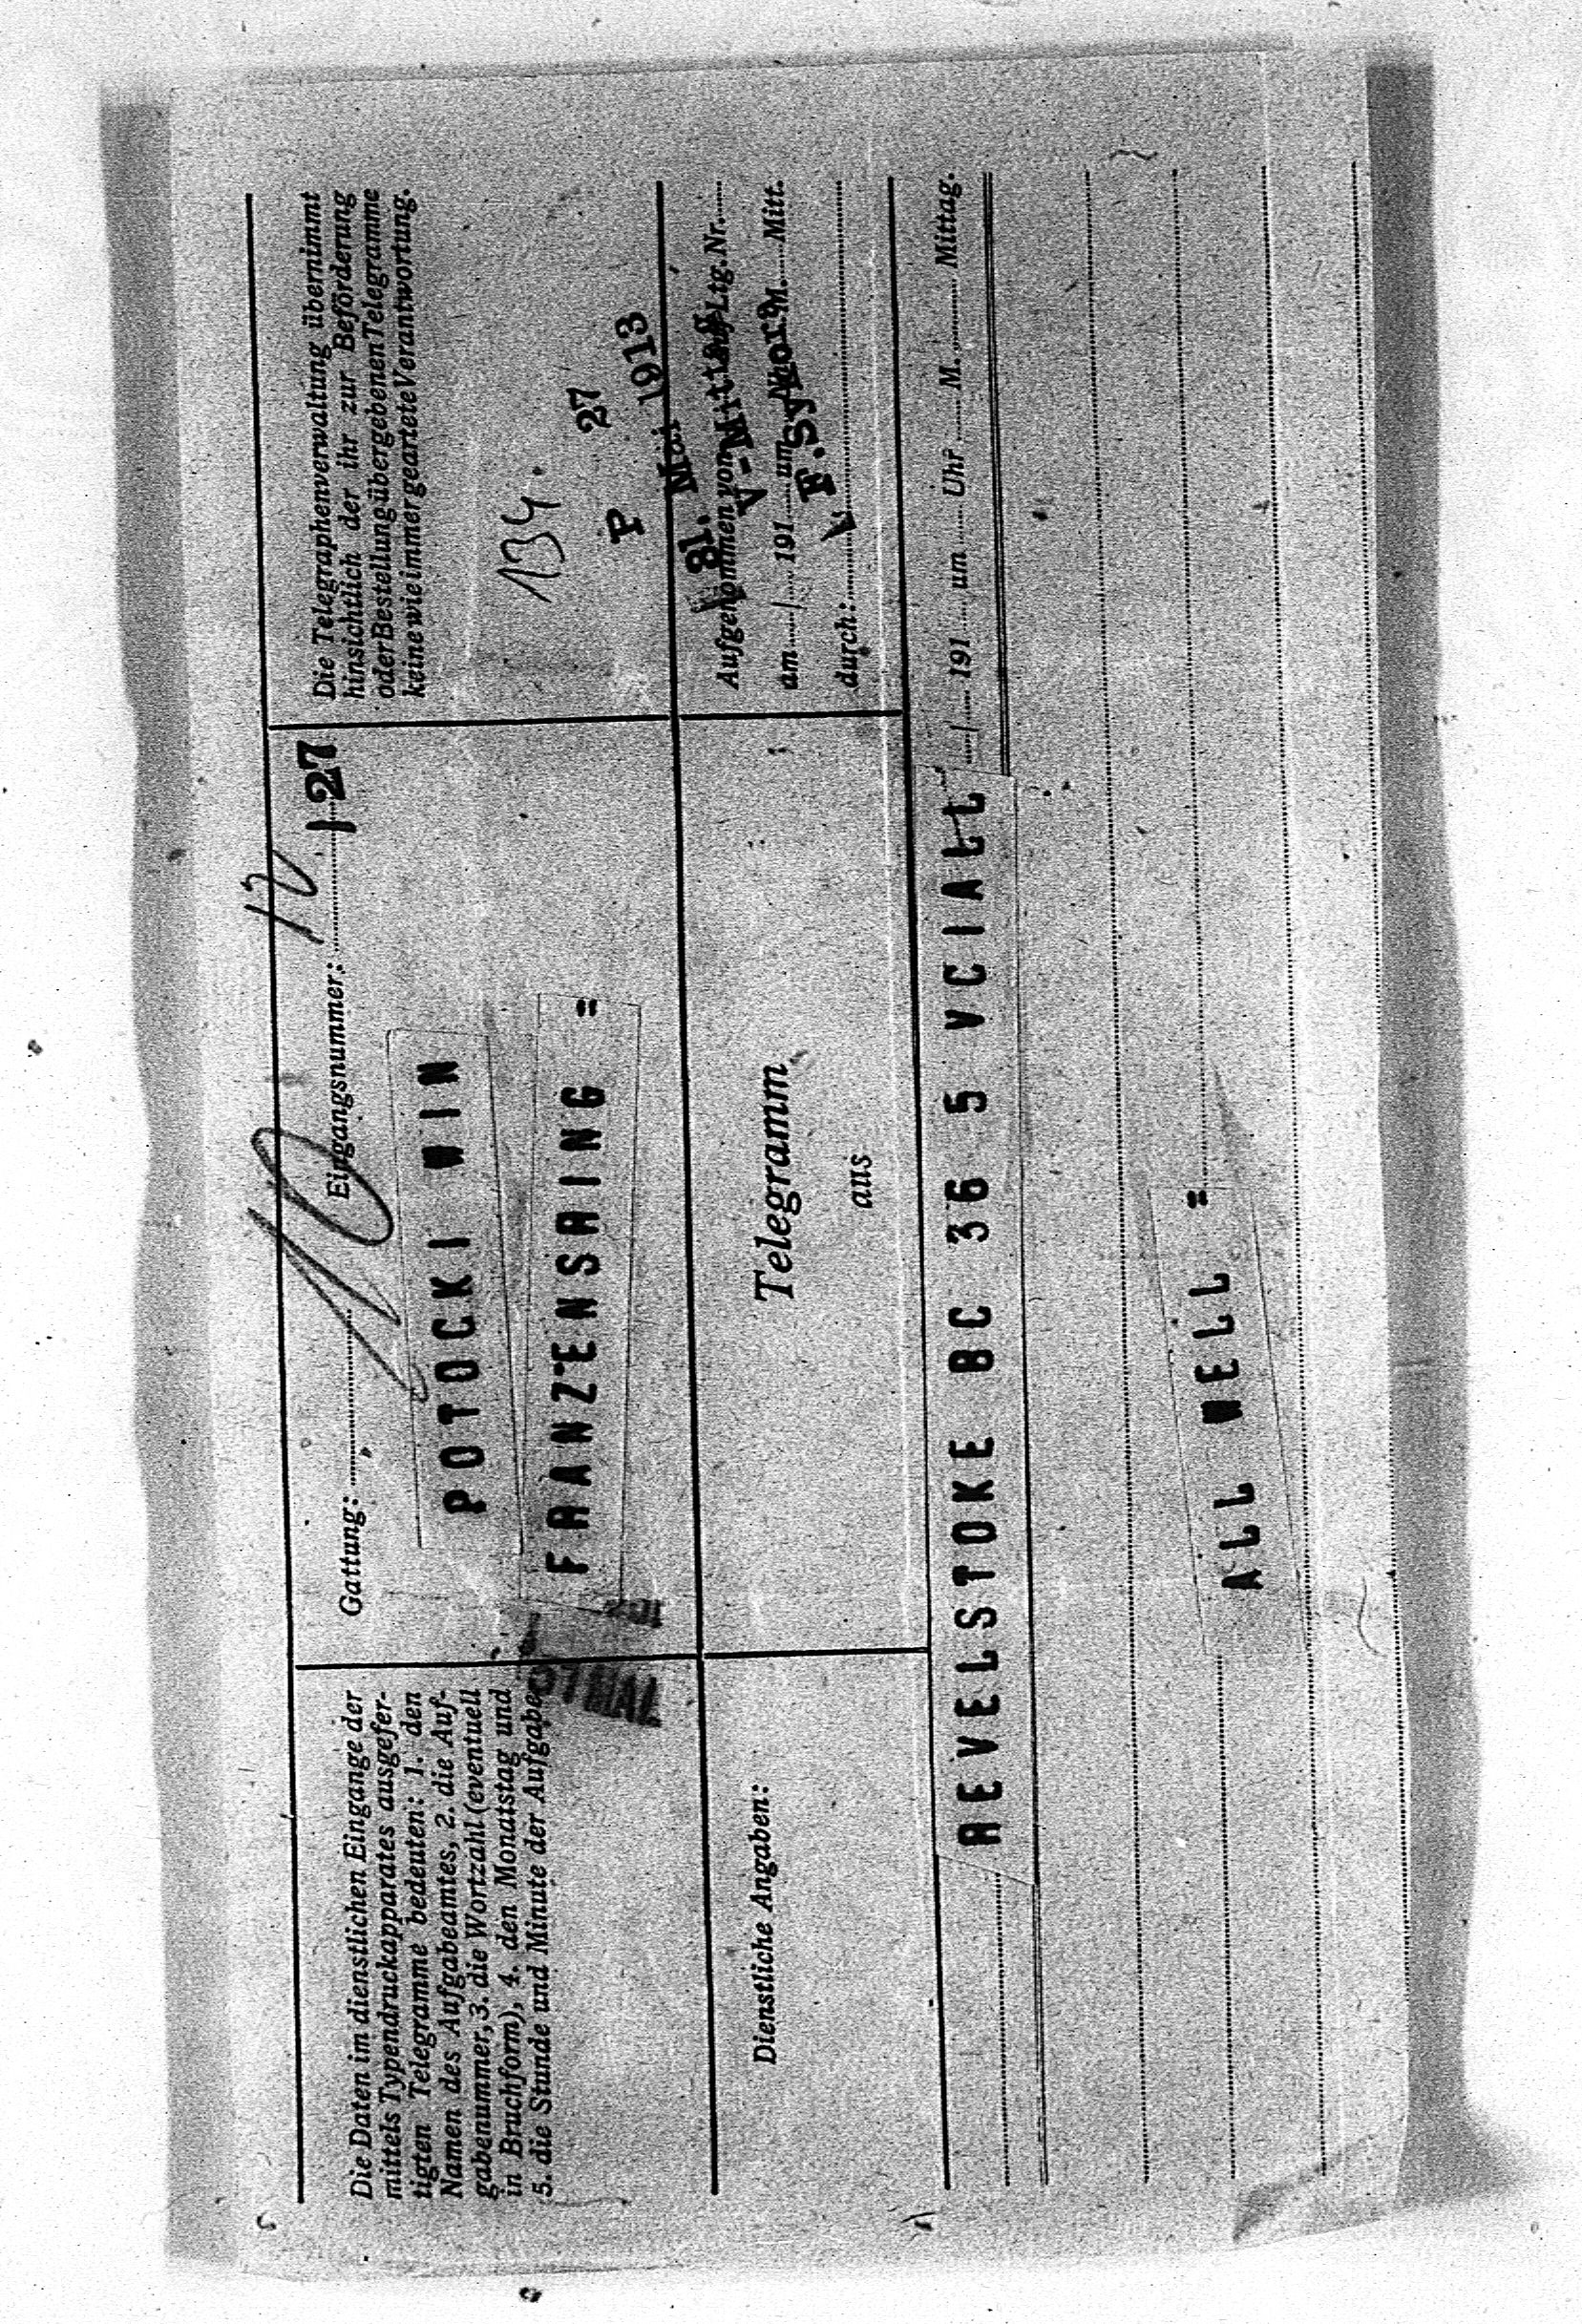 Die Daten im dienstlichen Eingange der
mittels Typendruckapparates ausgefer-
tigten Telegramme bedeuten: 1. den
Namen des Aufgabeamtes, 2. die Auf-
gabenummer, 3. die Wortzahl (eventuell
in Bruchform), 4. den Monatstag und
5. die Stunde und Minute der Aufgabe
Gattung:
10
Eingangsnummer:
12
27
POTOCKI WIN
FRANZENSAING =
Die Telegraphenverwaltung übernimmt
hinsichtlich der ihr zur Beförderung
oder Bestellung übergebenen Telegramme
keine wie immer geartete Verantwortung.
134.
P 27
Mai 1913
Dienstliche Angaben:
Telegramm
aus
Aufgenommen von Ltg. Nr.
V-Mittag
am / 191 um M. Mitt.
F. Sykora
durch:
REVELSTOKE BC 36 5 VCIALL
/ 191 um Uhr M. Mittag.
ALL WELL =